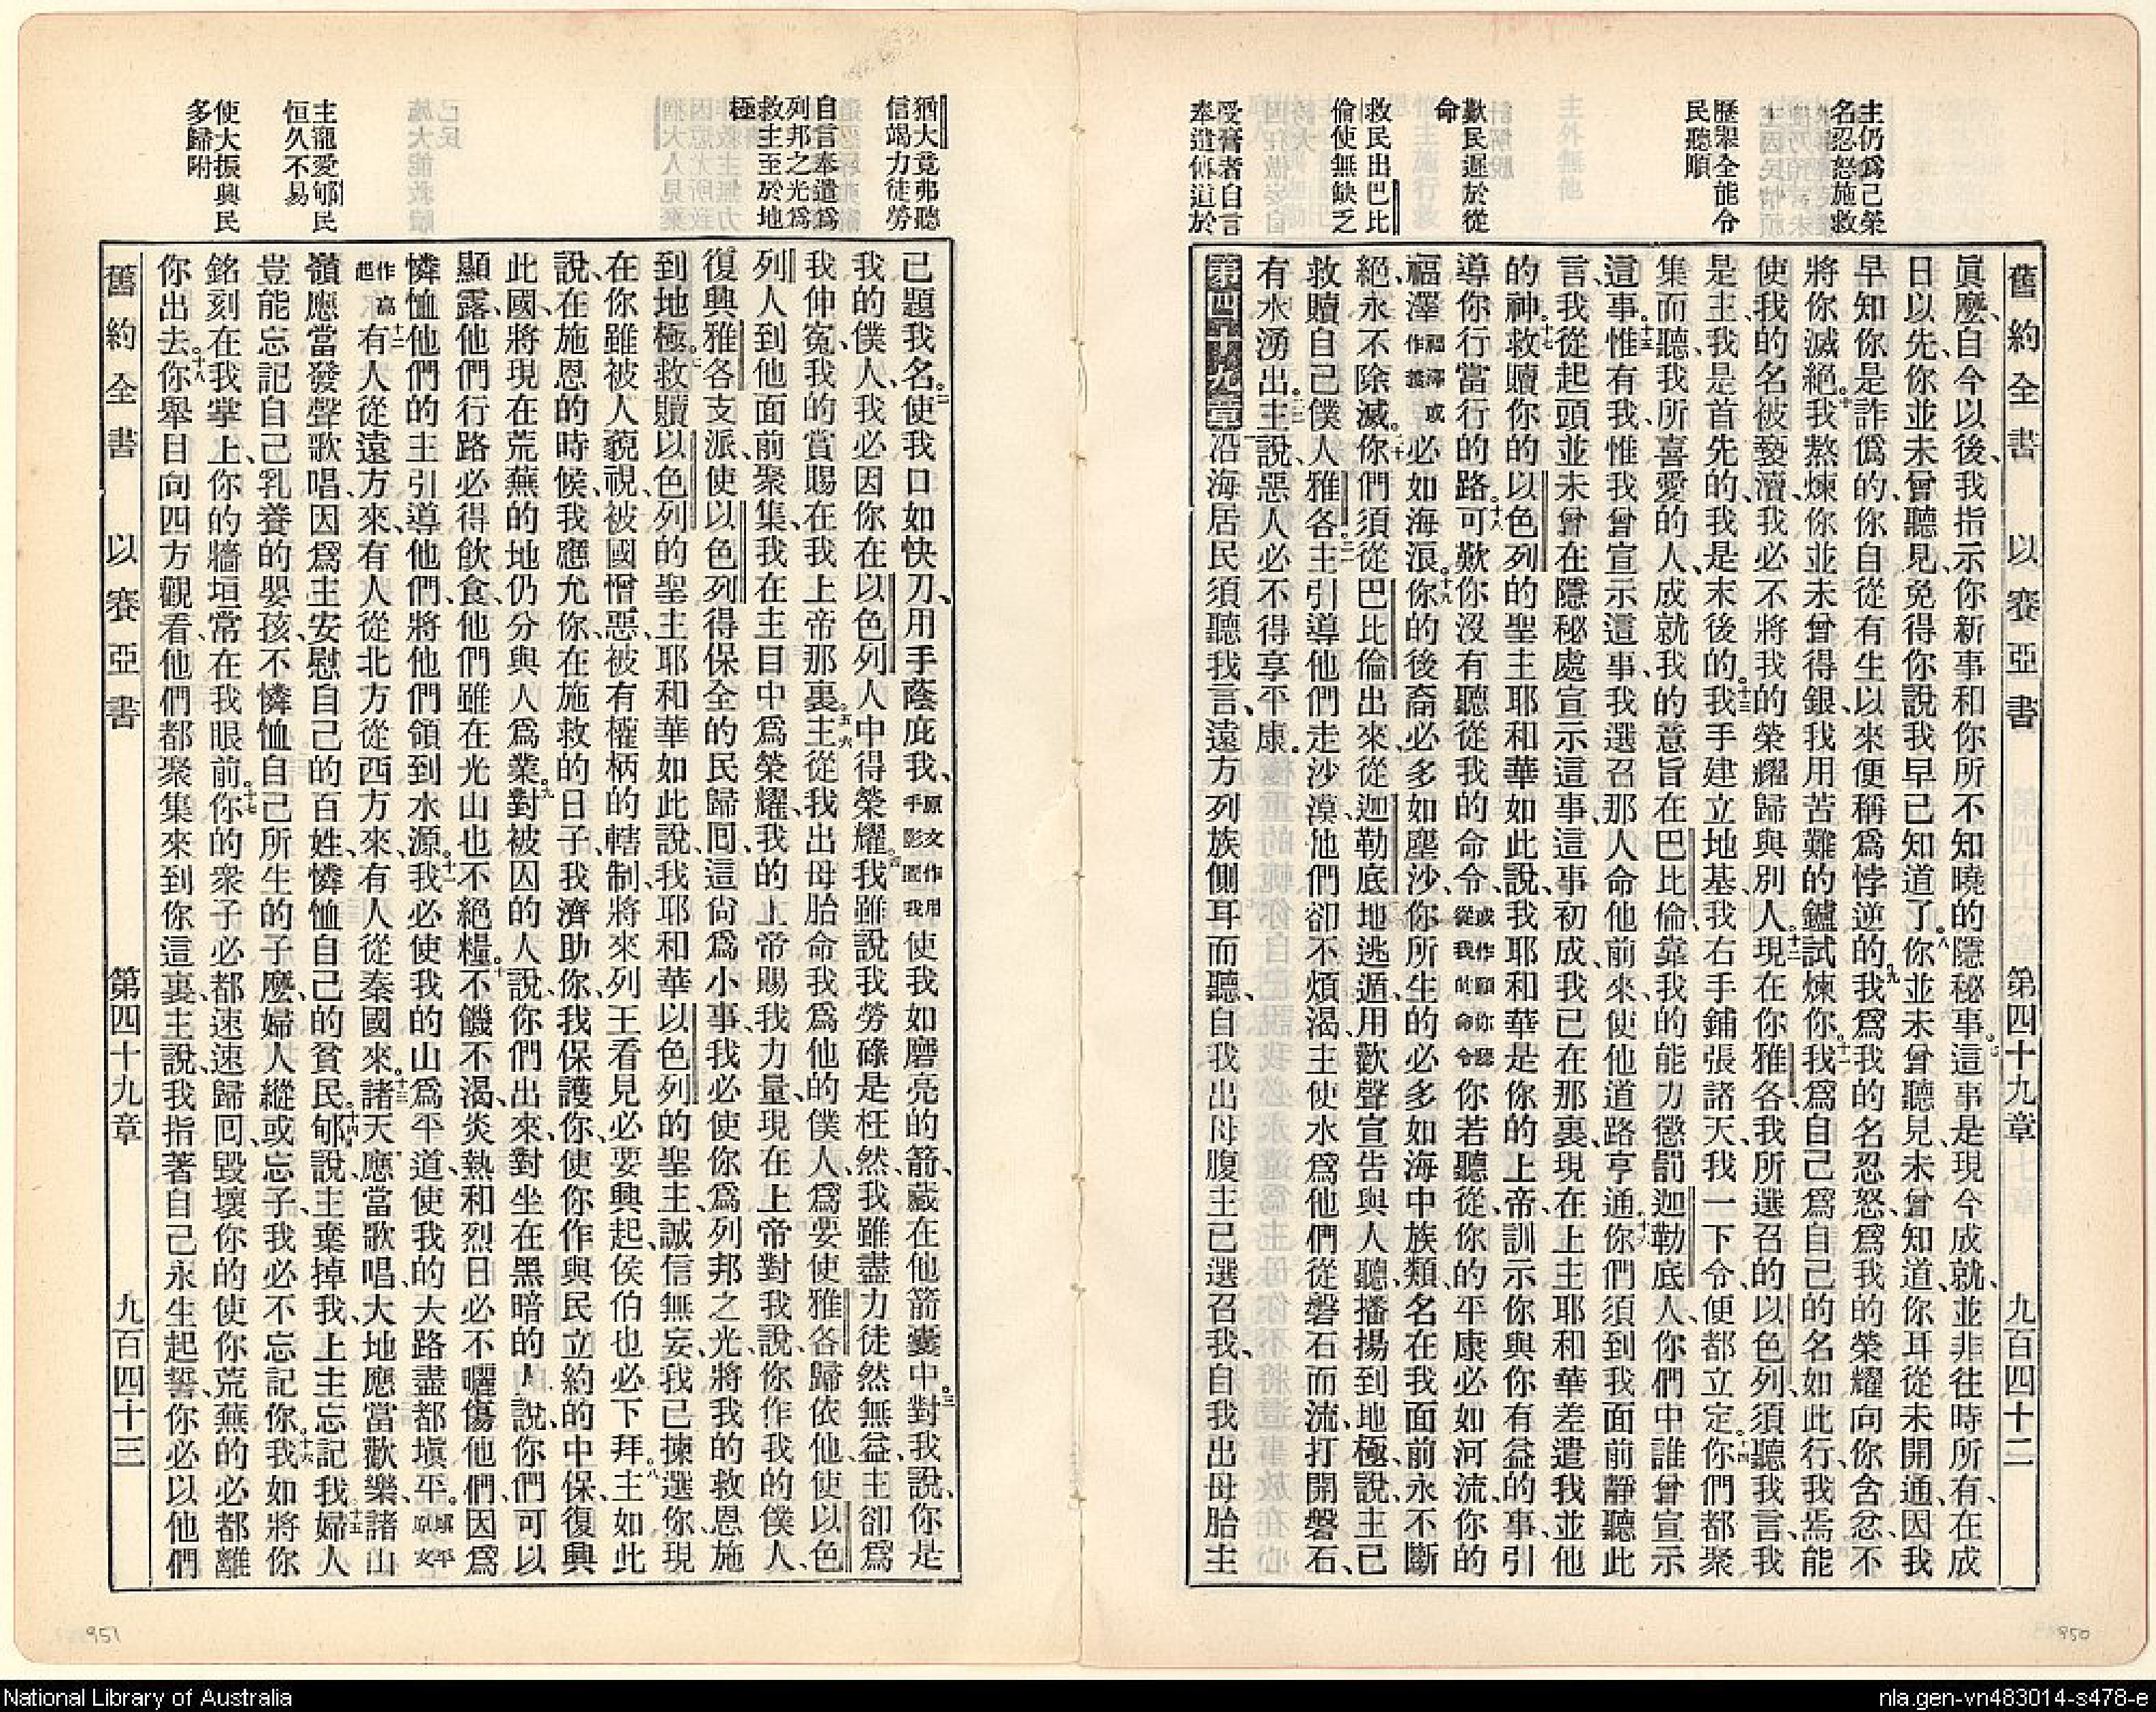 舊約全書 以賽亞書 第四十九章 九百四十二
主仍爲己榮
名忍怒施救
歷舉全能令
民聽順
歎民遲於從
命
救民出巴比
倫使無缺乏
受膏者自言
奉遣傳道於
眞麼、自今以後、我指示你新事和你所不知曉的隱秘事。七這事是現今成就、並非往時所有、在成
日以先、你並未曾聽見、免得你說我早已知道了。八你並未曾聽見、未曾知道、你耳從未開通、因我
早知你是詐僞的、你自從有生以來便稱爲悖逆的。九我爲我的名忍怒、爲我的榮耀向你含忿、不
將你滅絕。十我熬煉你、並未曾得銀、我用苦難的鑪試煉你。十一我爲自己爲自己的名如此行、我焉能
使我的名被褻瀆、我必不將我的榮耀歸與別人。十二現在你雅各、我所選召的以色列、須聽我言、我
是主、我是首先的、我是末後的。十三我手建立地基、我右手鋪張諸天、我一下令、便都立定。十四你們都聚
集而聽、我所喜愛的人、成就我的意旨在巴比倫、靠我的能力懲罰迦勒底人、你們中誰曾宣示
這事。十五惟有我、惟我曾宣示這事、我選召那人、命他前來、使他道路亨通。十六你們須到我面前靜聽此
言、我從起頭並未曾在隱秘處宣示這事、這事初成、我已在那裏、現在上主耶和華差遣我並他
的神。十七救贖你的以色列的聖主耶和華如此說、我耶和華是你的上帝、訓示你與你有益的事、引
導你行當行的路。十八可歎你沒有聽從我的命令、或作願你聽從我的命令你若聽從、你的平康必如河流、你的
福澤福澤或作義必如海浪。十九你的後裔必多如塵沙、你所生的必多如海中族類、名在我面前永不斷
絕、永不除滅。二十你們須從巴比倫出來、從迦勒底地逃遁、用歡聲宣告與人聽、播揚到地極、說、主已
救贖自己僕人雅各。二一主引導他們走沙漠、他們卻不煩渴、主使水爲他們從磐石而流、打開磐石、
有水湧出。二二主說、惡人必不得享平康。
第四十九章一沿海居民須聽我言、遠方列族側耳而聽、自我出母腹、主已選召我、自我出母胎、主
猶大竟弗聽
信竭力徒勞
自言奉遣爲
列邦之光爲
救主至於地
極
主寵愛郇民
恒久不易
使大振興民
多歸附
已題我名。二使我口如快刀、用手蔭庇我、原文作用手影遮我使我如磨亮的箭、藏在他箭囊中。三對我說、你是
我的僕人、我必因你在以色列人中得榮耀。四我雖說我勞碌是枉然、我雖盡力徒然無益、主卻爲
我伸寃、我的賞賜在我上帝那裏。五六主從我出母胎、命我爲他的僕人、爲要使雅各歸依他、使以色
列人到他面前聚集、我在主目中爲榮耀、我的上帝賜我力量、現在上帝對我說、你作我的僕人、
復興雅各支派、使以色列得保全的民歸回、這尙爲小事、我必使你爲列邦之光、將我的救恩施
到地極。七救贖以色列的聖主耶和華如此說、我耶和華以色列的聖主、誠信無妄、我已揀選你、現
在你雖被人藐視、被國憎惡、被有權柄的轄制、將來列王看見必要興起、侯伯也必下拜。八主如此
說、在施恩的時候、我應允你、在施救的日子、我濟助你、我保護你、使你作與民立約的中保、復興
此國、將現在荒蕪的地仍分與人爲業。九對被囚的人說、你們出來、對坐在黑暗的人說、你們可以
顯露、他們行路必得飲食、他們雖在光山也不絕糧。十不饑不渴、炎熱和烈日必不曬傷他們、因爲
憐恤他們的主引導他們、將他們領到水源。十一我必使我的山爲平道、使我的大路盡都塡平。塡平原文
作高起十二有人從遠方來、有人從北方從西方來、有人從秦國來。十三諸天應當歌唱、大地應當歡樂、諸山
嶺應當發聲歌唱、因爲主安慰自己的百姓、憐恤自己的貧民。十四郇說、主棄掉我、上主忘記我。十五婦人
豈能忘記自己乳養的嬰孩、不憐恤自己所生的子麼、婦人縱或忘子、我必不忘記你。十六我如將你
銘刻在我掌上、你的牆垣常在我眼前。十七你的衆子必都速速歸回、毀壞你的使你荒蕪的必都離
你出去。十八你舉目向四方觀看、他們都聚集來到你這裏、主說、我指著自己永生起誓、你必以他們
舊約全書 以賽亞書 第四十九章 九百四十三
951
950
National Library of Australia
nla.gen-vn483014-s478-e